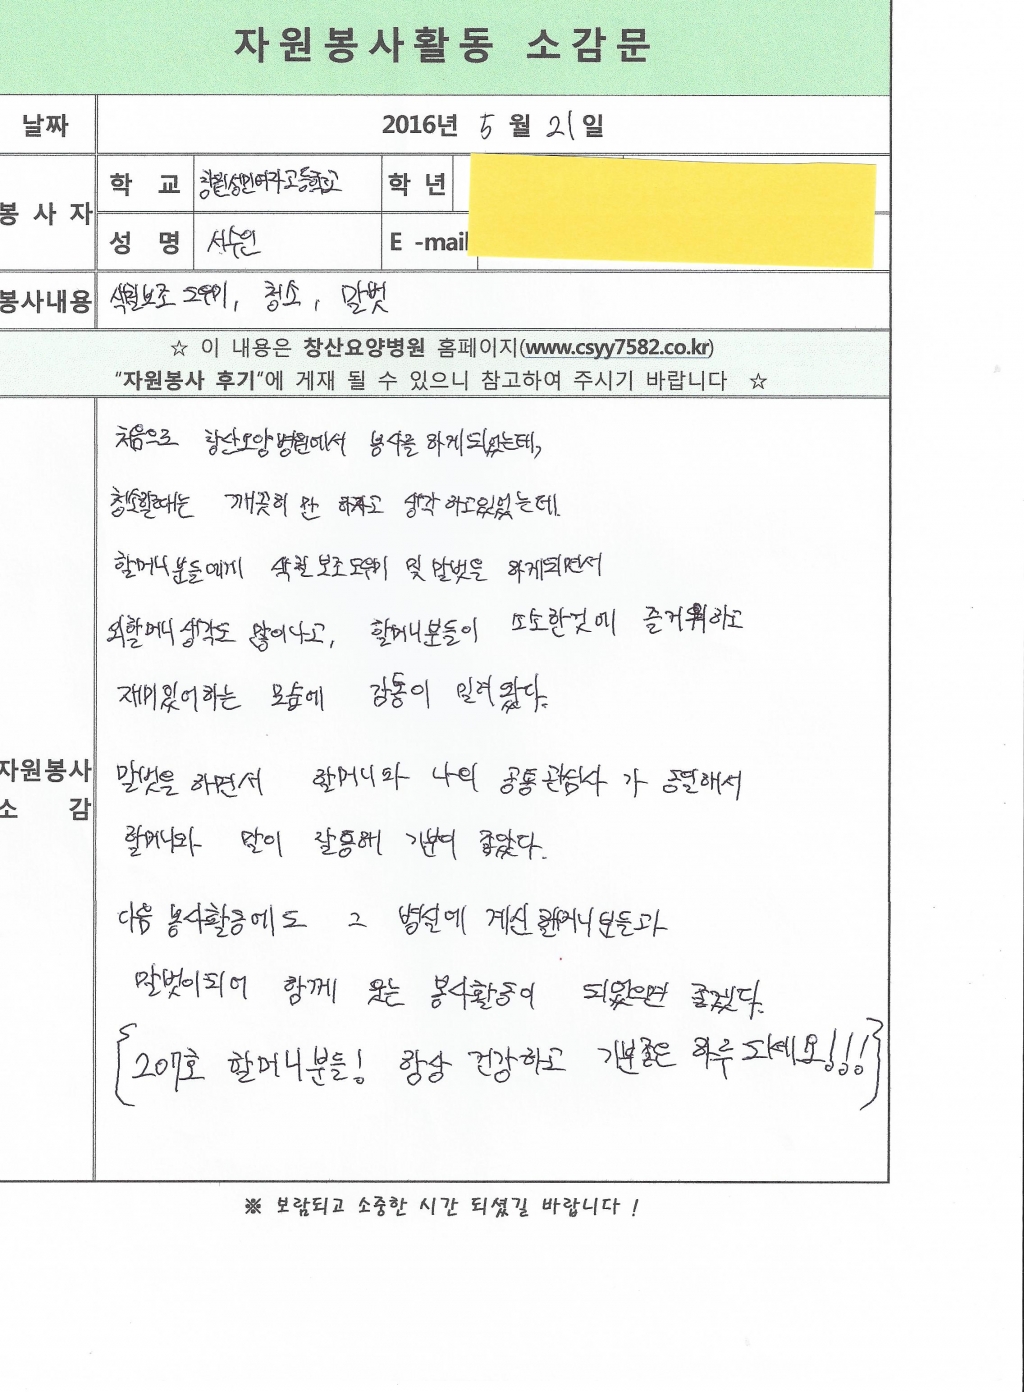 자원봉사활동 소감문
날짜 2016년 5 월 21일
봉사자
학 교 창원성민여자고등학교 학 년
성 명 서수인 E -mail
봉사내용 식월보조 도우미, 청소, 말벗
☆ 이 내용은 창산요양병원 홈페이지(www.csyy7582.co.kr)
"자원봉사 후기"에 게재 될 수 있으니 참고하여 주시기 바랍니다 ☆
자원봉사
소 감
처음으로 창산요양병원에서 봉사를 하게되었는데,
청소할때는 깨끗히 만 하자고 생각 하고있었는데.
할머니분들에게 보조도우미 및 말벗을 하게되면서
외할머니 생각도 많이나고, 할머니분들이 소소한것에 즐거워하고
재미있어하는 모습에 감동이 밀려 왔다.
말벗을 하면서 할머니와 나의 공통관심사 가 동일해서
할머니와 말이 잘통해 기분이 좋았다.
다음 봉사활동에도 그 병실에 계신 할머니분들과
말벗이되어 함께 웃는 봉사활동이 되었으면 좋겠다.
{207호 할머니분들! 항상 건강하고 기분좋은 하루 되세요!!!}
※ 보람되고 소중한 시간 되셨길 바랍니다 !